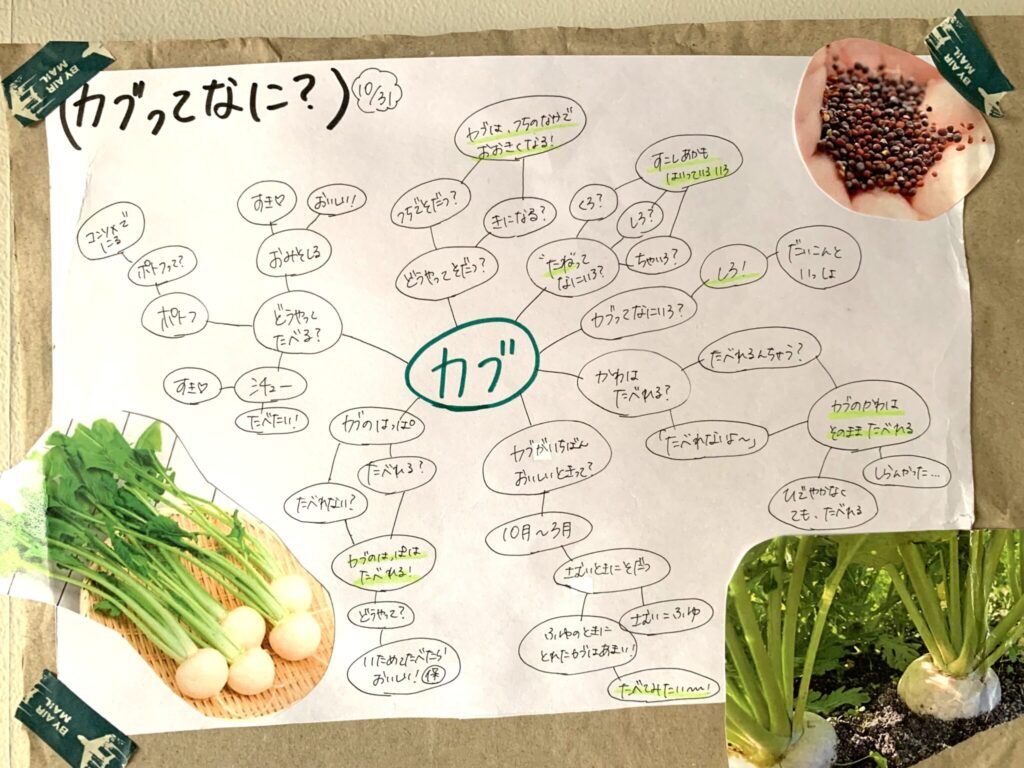 (カブってなに?)
10/31
カブは、つちのなかで
おおきくなる!
つちでそだつ?
きになる?
どうやってそだつ?
すこしあかも
はいっているいろ
くろ?
しろ?
ちゃいろ?
たねって
なにいろ?
カブってなにいろ?
しろ!
だいこんと
いっしょ
カブ
すき♡
おいしい!
おみそしる
どうやって
たべる?
コンソメで
にる
ポトフって?
ポトフ
シチュー
すき♡
たべたい!
かわは
たべれる?
たべれるんちゃう?
「たべれないよ〜」
カブのかわは
そのまま たべれる
しらんかった…
ひでやかなく
ても、たべれる
カブのはっぱ
たべれる?
たべれない?
カブのはっぱは
たべれる!
どうやって?
いためてたべたら
おいしい! 保
カブがいちばん
おいしいときって?
10月〜3月
さむいときにそだつ
さむい=ふゆ
ふゆのときに
とれたカブはあまい!
たべてみたい〜!
BY AIR
MAIL
BY AIR
MAIL
BY AIR
MAIL